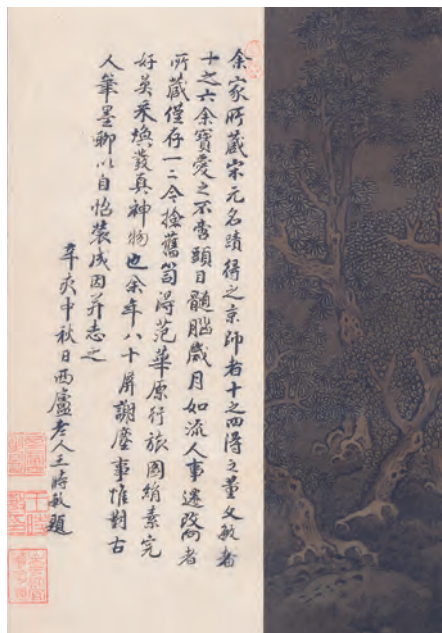 余家所藏宋元名蹟得之京師者十之四得之董文敏者
十之六余寶愛之不啻頭目髓腦歲月如流人事遷改向者
所藏僅存一二今撿舊笥得范華原行旅圖絹素完
好英采煥發真神物也余年八十屏謝塵事惟對古
人筆墨聊以自怡裝成因并志之
辛亥中秋日西廬老人王時敏題